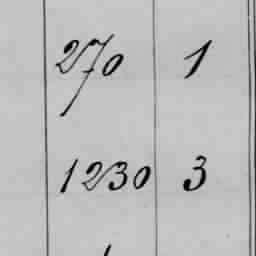 270 1
1230 3